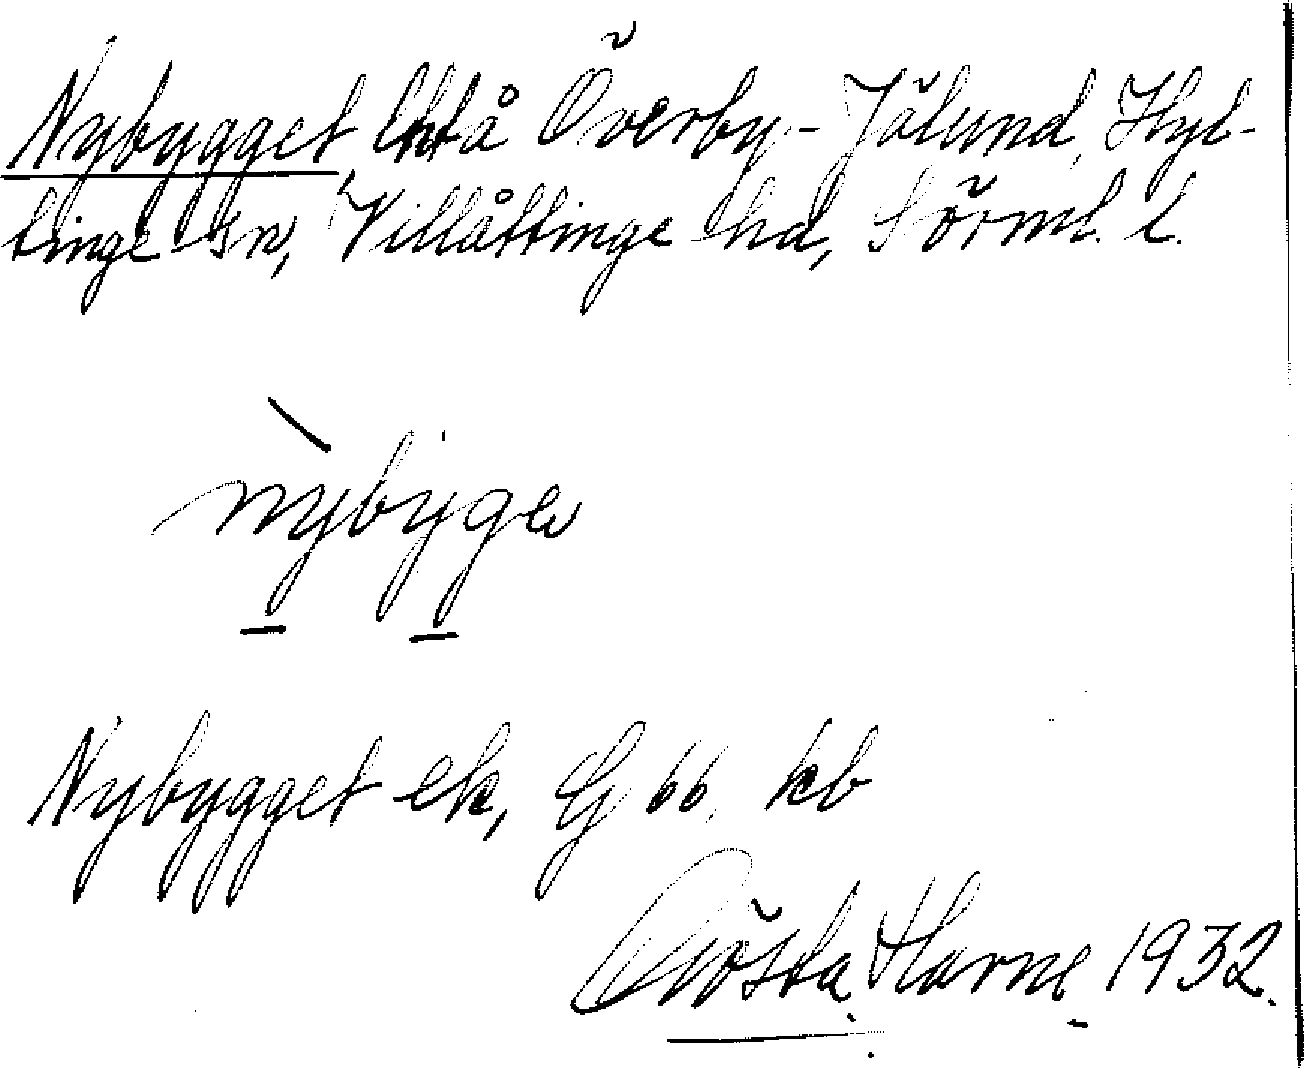 Nybygget lhtå Överby-Jälund, Hyl-
tinge sn, Villåttinge hd, Sörml. l.
nybyge
Nybygget ek, G 66, kb
Gösta Harne 1932.